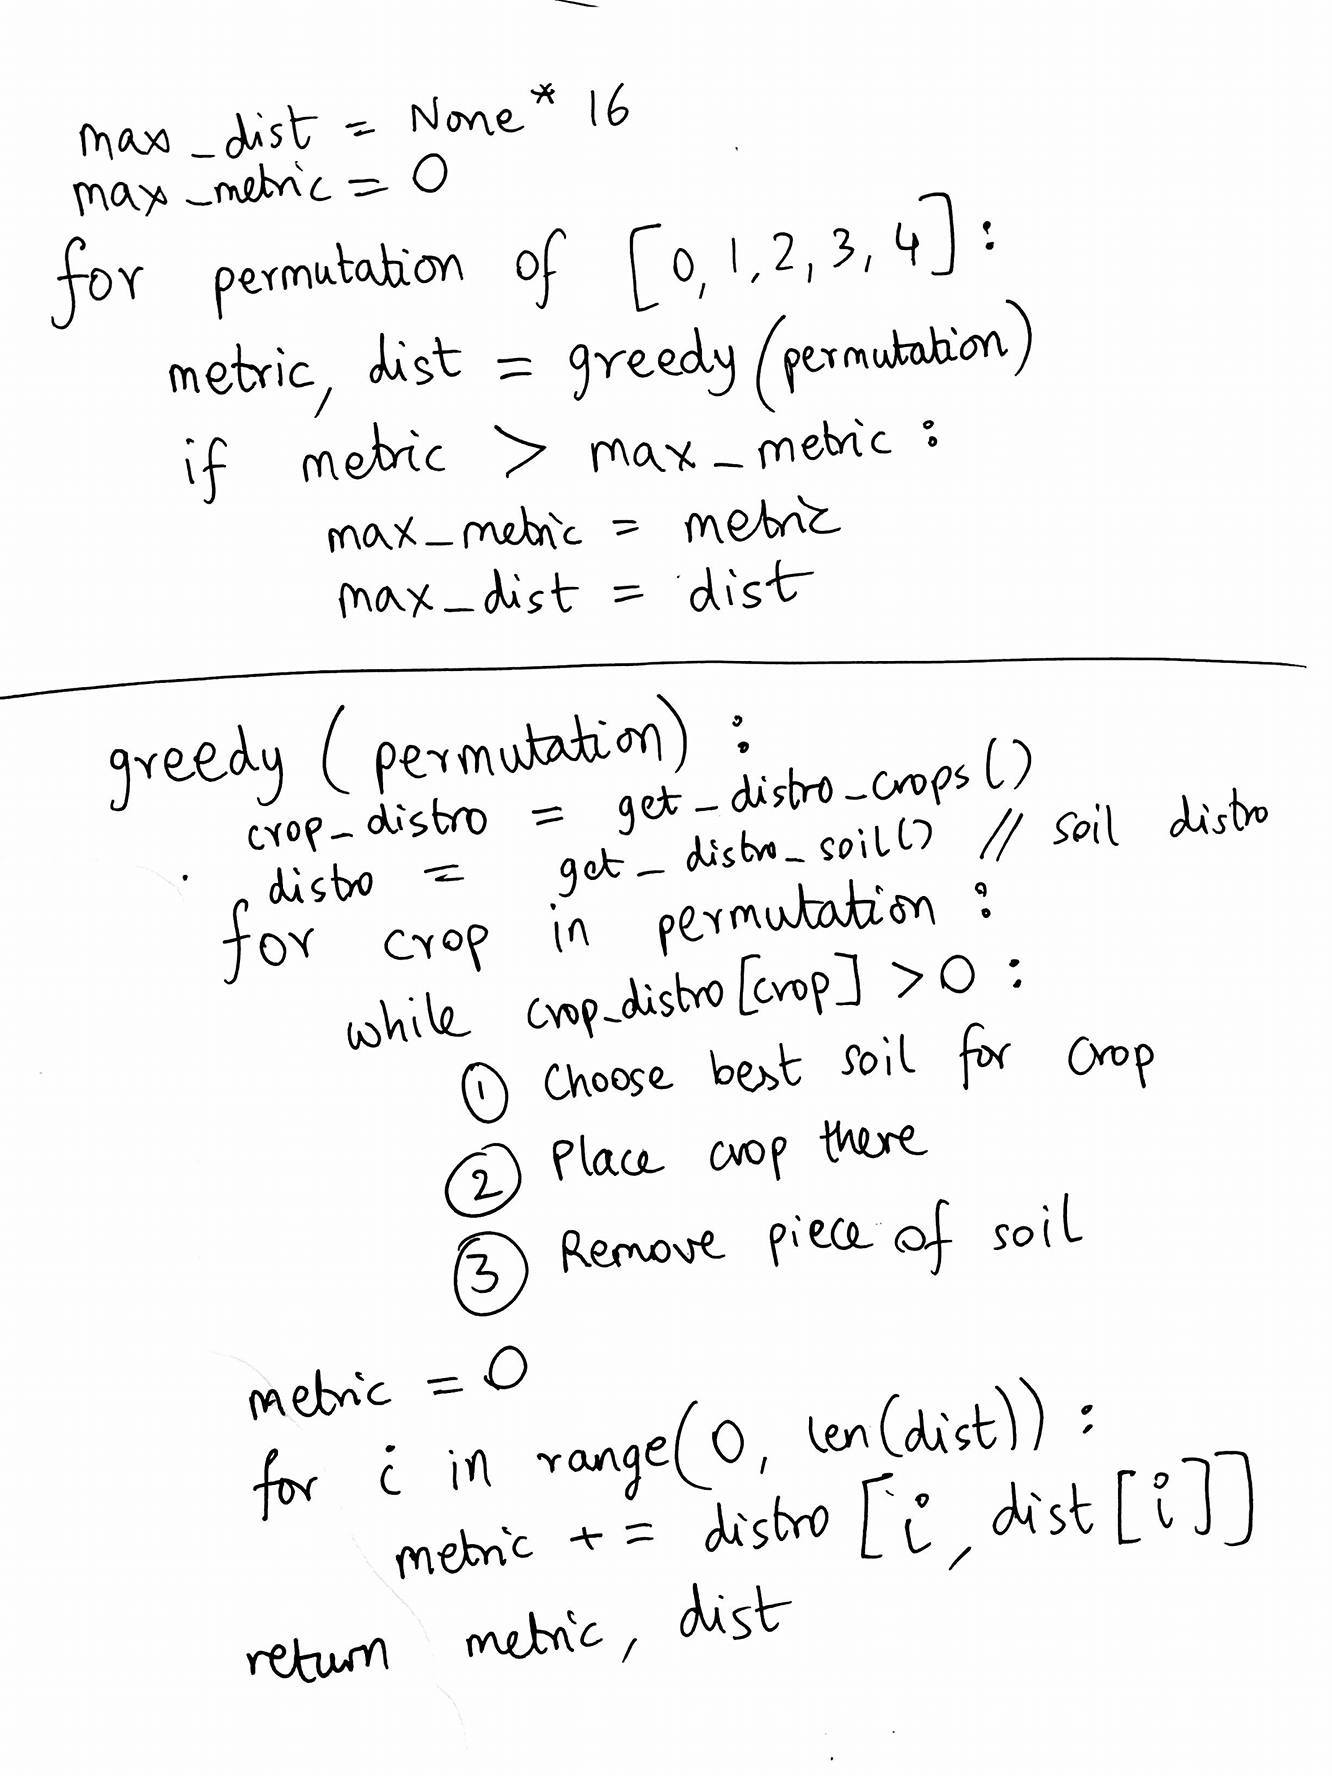 max_dist = None * 16
max_metric = 0
for permutation of [0, 1, 2, 3, 4] :
metric, dist = greedy (permutation)
if metric > max_metric :
max_metric = metric
max_dist = dist
greedy (permutation) :
crop_distro = get_distro_crops()
distro = get_distro_soil() // soil distro
for crop in permutation :
while crop_distro [crop] > 0 :
① Choose best soil for crop
② Place crop there
③ Remove piece of soil
metric = 0
for i in range(0, len(dist)) :
metric += distro [i, dist [i]]
return metric, dist